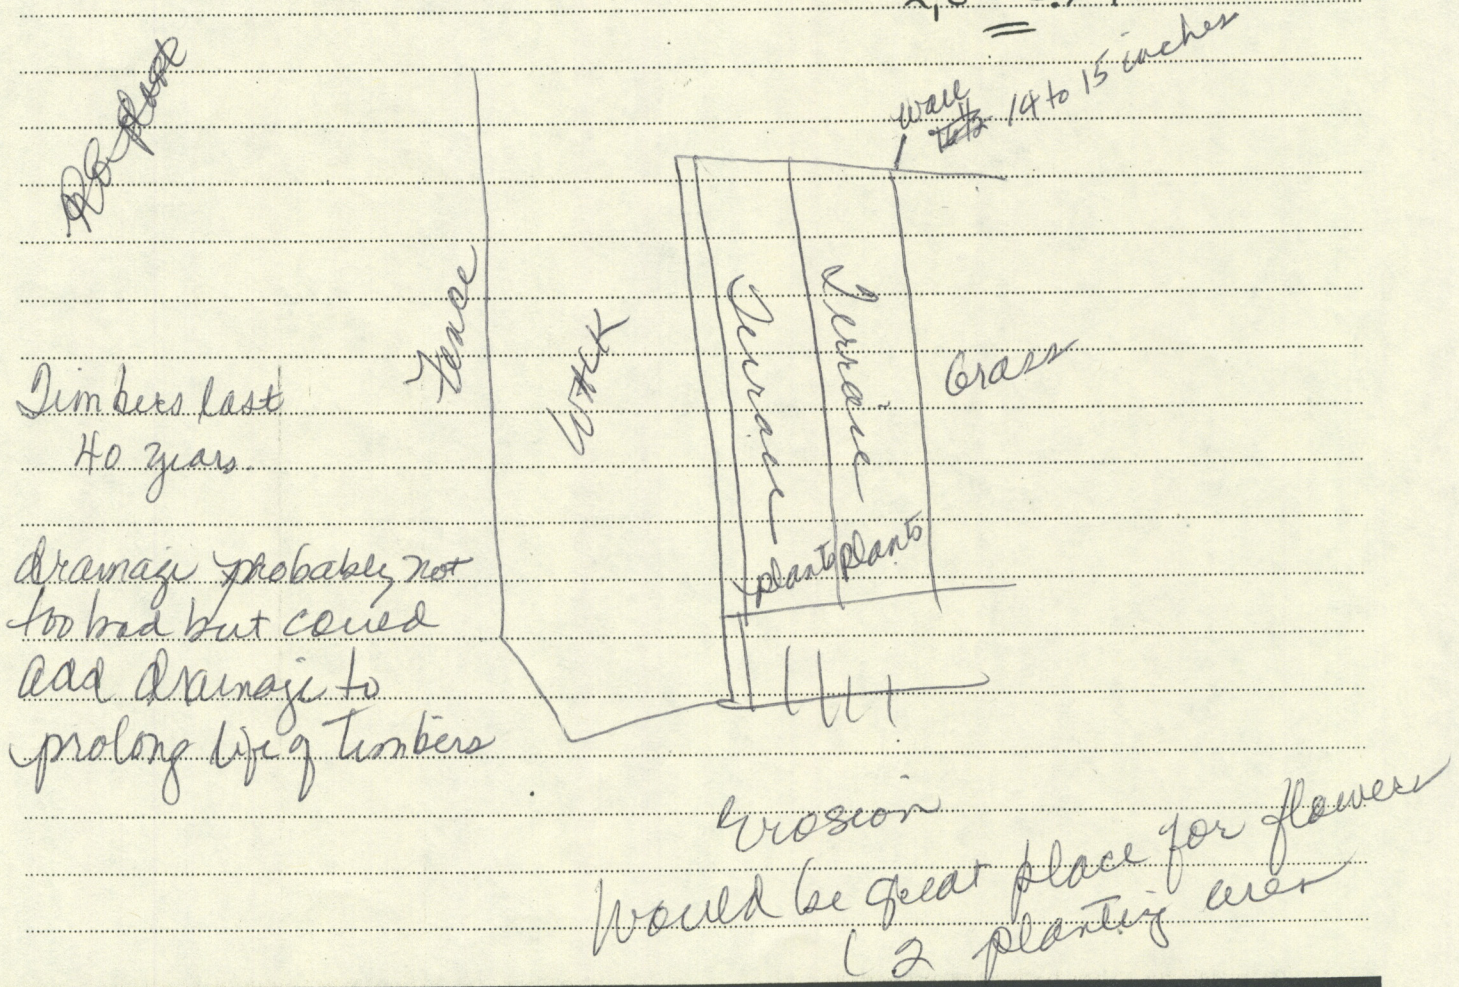 wall
14 to 15 inches
Fence
Terrace
Terrace
Grass
plants plants
Timbers last
40 years.
drainage probably not
too bad but could
add drainage to
prolong life of timbers
Erosion
Would be great place for flowers
( 2 planting area